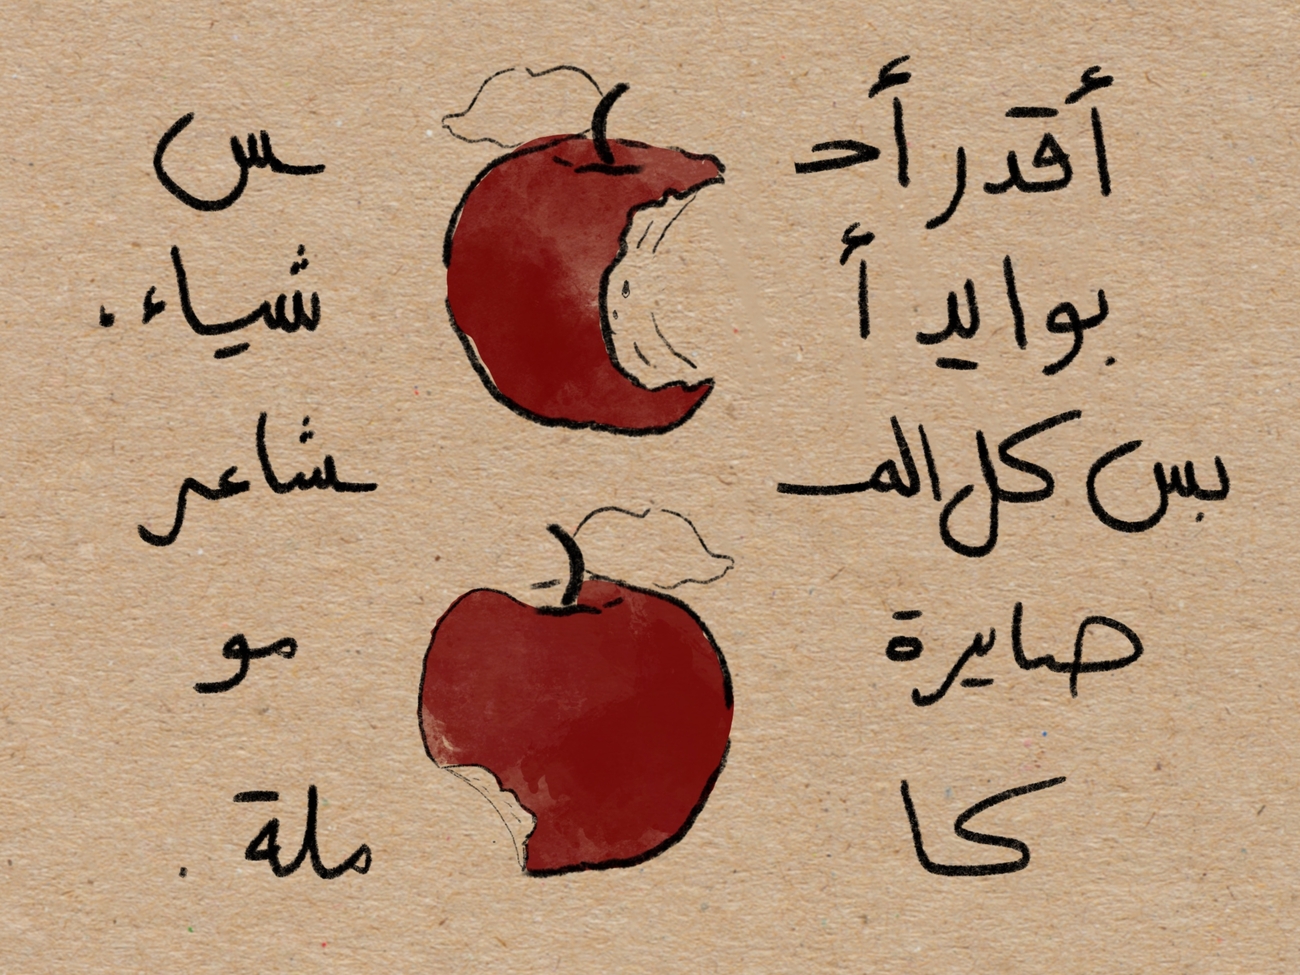 أقدر أحـ ـس
بوايد أ شياء.
بس كل المـ ـشاعر
صايرة مو
كا ملة.